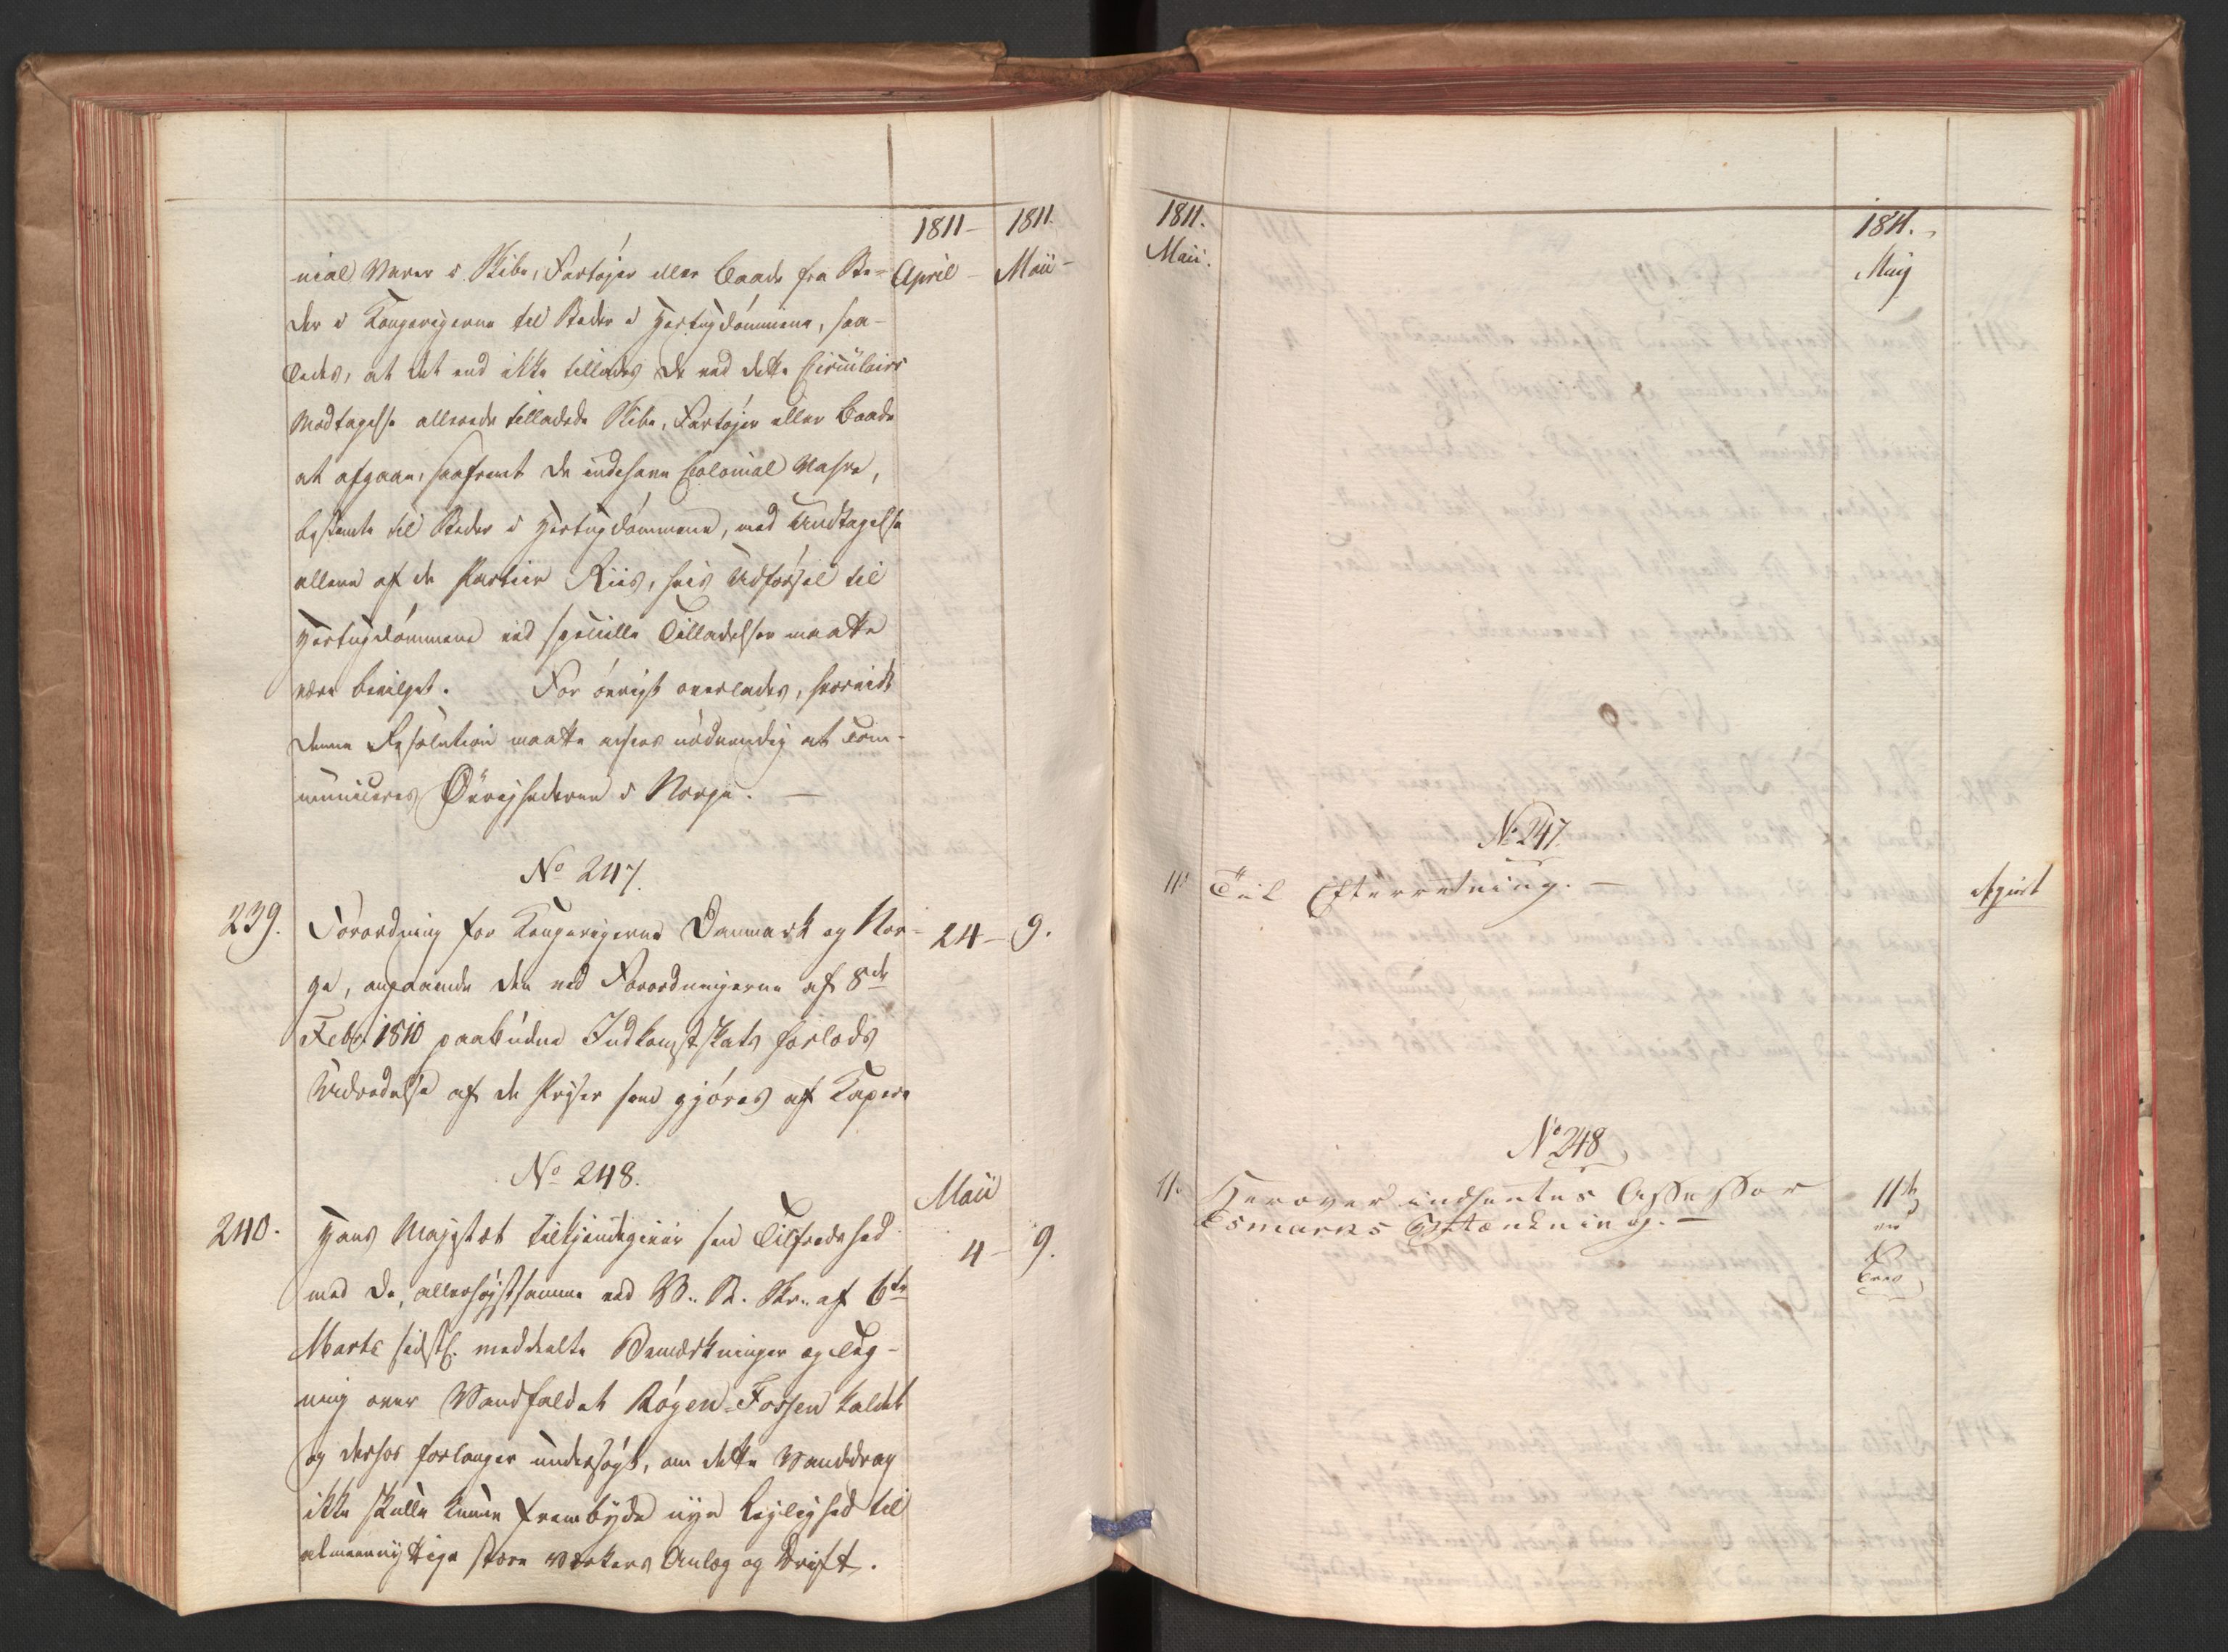 1811 – 1811.
April – Maii –
nial Varer i Skibe, Fartøjer eller Baade fra Ste-
der i Kongerigerne til Steder i Hertugdømmene, saa-
ledes, at det end ikke tillades de ved dette Circulairs
Modtagelse allerede tilladede Skibe, Fartøjer eller Baade
at afgaae, saafremt de indehave Colonial Vahre,
bestemte til Steder i Hertugdømmene, med Undtagelse
allene af de Partier Riis, hvis Udførsel til
Hertugdømmene ved specielle Tilladelser maatte
være bevilget. For øvrigt overlades, hvorvidt
denne Resolution maatte ansees nødvendig at com-
municeres Øvrighederne i Norge. –
No 247.
239. Forordning for Kongerigerne Danmark og Nor- 24 – 9.
ge, angaaende den ved Forordningerne af 8de
Febr 1810 paabudne Indkomstskats forlods
Udredelse af de Priser som gjøres af Kapere
No 248.
Maii
240. Hans Majestæt tilkjendegiver sin Tilfredshed 4 – 9.
med de, allerhøjstsamme ved V. St. Skr. af 6te
Marts sidstl. meddeelte Bemærkninger og Teg-
ning over Vandfaldet Rógen-Fossen kaldet
og derhos forlanger undersøgt, om dette Vanddrag
ikke skulle kunne frembyde nye Leylighed til
almeennyttige større Værkers Anlæg og Drift.
1811.
Maii.
1811.
Maij
No 247.
11 Till Efterretning. – Afgjort
No 248
11. Herover indhentes Assessor 11te
Esmarks Betænkning. –